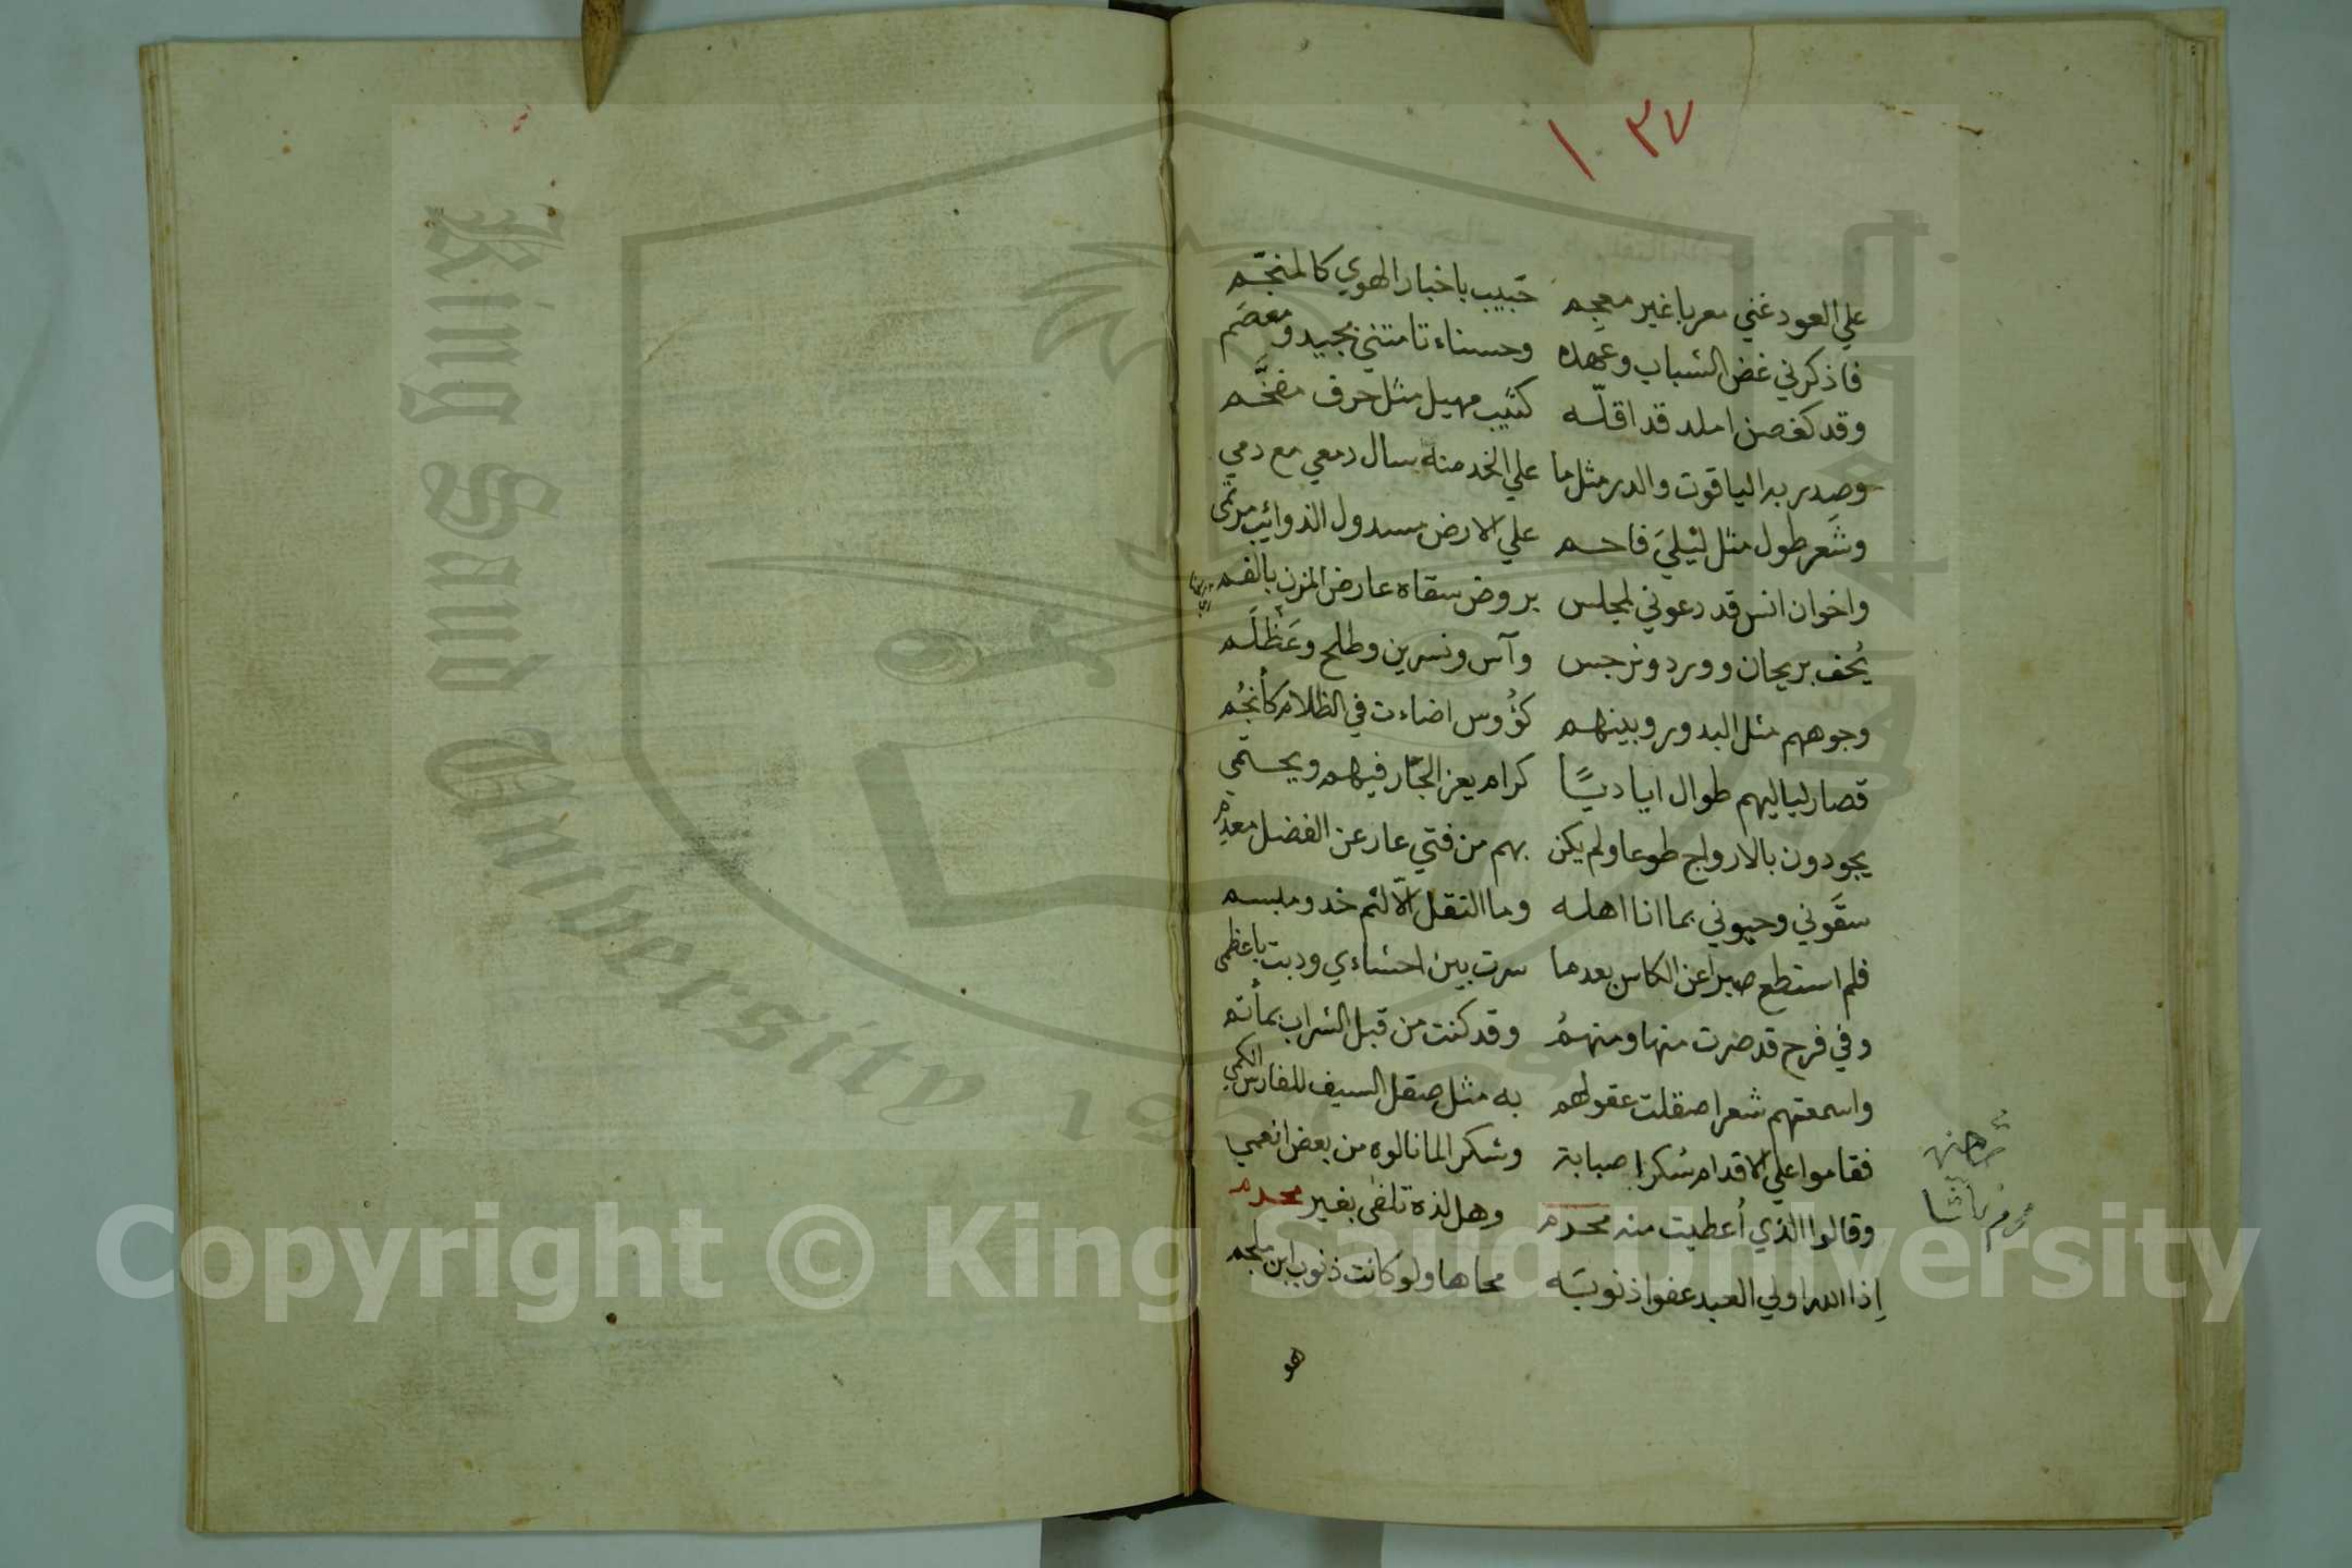 ١٠٣٧
علي العود غني معربا غير معجم حبيب باخبار الهوي كالمنجّم
فاذكرني غض الشباب وعهده وحسناء تامتني بجيد ومعصَم
وقد كغصن املد قد اقلّه كثيب مهيل مثل حرف مفخَّم
وصدر به الياقوت والدر مثل ما علي الخد منه سال دمعي مع دمي
وشَعر طول مثل ليْليَ فاحم علي الارض مسدول الذوائب مرتمى
واخوان انس قد دعوني لمجلس بروض سقاه عارض المزن بالفم
يُحف بريحان وورد ونرجس وآس ونسرين وطلح وعَظْلَم
وجوههم مثل البدور وبينهم كؤوس اضاءت في الظلام كأنجُم
قصار لياليهم طوال اياديًا كرام يعز الجار فيهم ويحتمي
يجودون بالارواح طوعا ولم يكن بهم من فتي عار عن الفضل معدم
سقَوني وحيوني بما انا اهله وما النقل الّا لثم خد ومبسم
فلم استطع صبرا عن الكاس بعدما سرت بين احشاءي ودبت باعظمى
وفي فرح قد صرت منها ومنهمُ وقد كنت من قبل الشراب بمأتم
واسمعتهم شعرا صقلت عقولهم به مثل صقل السيف للفارس الكمي
فقاموا علي الاقدام شكرا صبابة وشكرا لما نالوه من بعض انعمي
وقالوا الذي أُعطيت منه محرم وهل لذة تلفى بغير محرم
اِذا الله اولي العبد عفوا ذنوبَه محاها ولو كانت ذنوب ابن ملجم
King Saud University 1957
Copyright © King Saud University